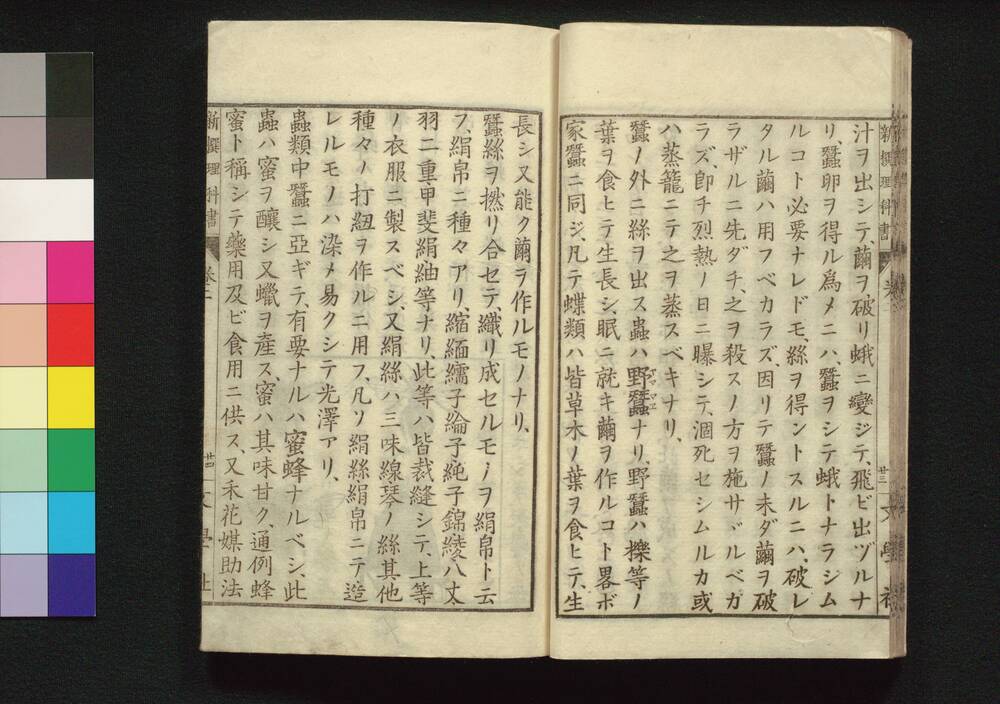 新撰理科書
汁ヲ出シテ、繭ヲ破リ蛾ニ變ジテ、飛ビ出ヅルナ
リ、蠶卵ヲ得ル爲メニハ、蠶ヲシテ蛾トナラシム
ルコト必要ナレドモ、絲ヲ得ントスルニハ、破レ
タル繭ハ用フベカラズ、因リテ蠶ノ未ダ繭ヲ破
ラザルニ先ダチ、之ヲ殺スノ方ヲ施サヾルベカ
ラズ、卽チ烈熱ノ日ニ曝シテ、涸死セシムルカ或
ハ蒸籠ニテ之ヲ蒸スベキナリ、
蠶ノ外ニ絲ヲ出ス蟲ハ野蠶ナリ、野蠶ハ櫟等ノ
葉ヲ食ヒテ生長シ、眠ニ就キ繭ヲ作ルコト畧ボ
家蠶ニ同ジ、凡テ蝶類ハ皆草木ノ葉ヲ食ヒテ、生
廿三
文學社
長シ又能ク繭ヲ作ルモノナリ、
蠶絲ヲ撚リ合セテ、織リ成セルモノヲ絹帛ト云
フ、絹帛ニ種々アリ、縮緬繻子綸子純子錦綾八丈
羽二重甲斐絹紬等ナリ、此等ハ皆裁縫シテ、上等
ノ衣服ニ製スベシ、又絹絲ハ三味線琴ノ絲其他
種々ノ打紐ヲ作ルニ用フ、凡ソ絹絲絹帛ニテ造
レルモノハ染メ易クシテ光澤アリ、
蟲類中蠶ニ亞ギテ、有要ナルハ蜜蜂ナルベシ、此
蟲ハ蜜ヲ釀シ又蠟ヲ產ス、蜜ハ其味甘ク、通例蜂
蜜ト稱シテ藥用及ビ食用ニ供ス、又禾花媒助法
新撰理科書
卷二
廿四
文學社